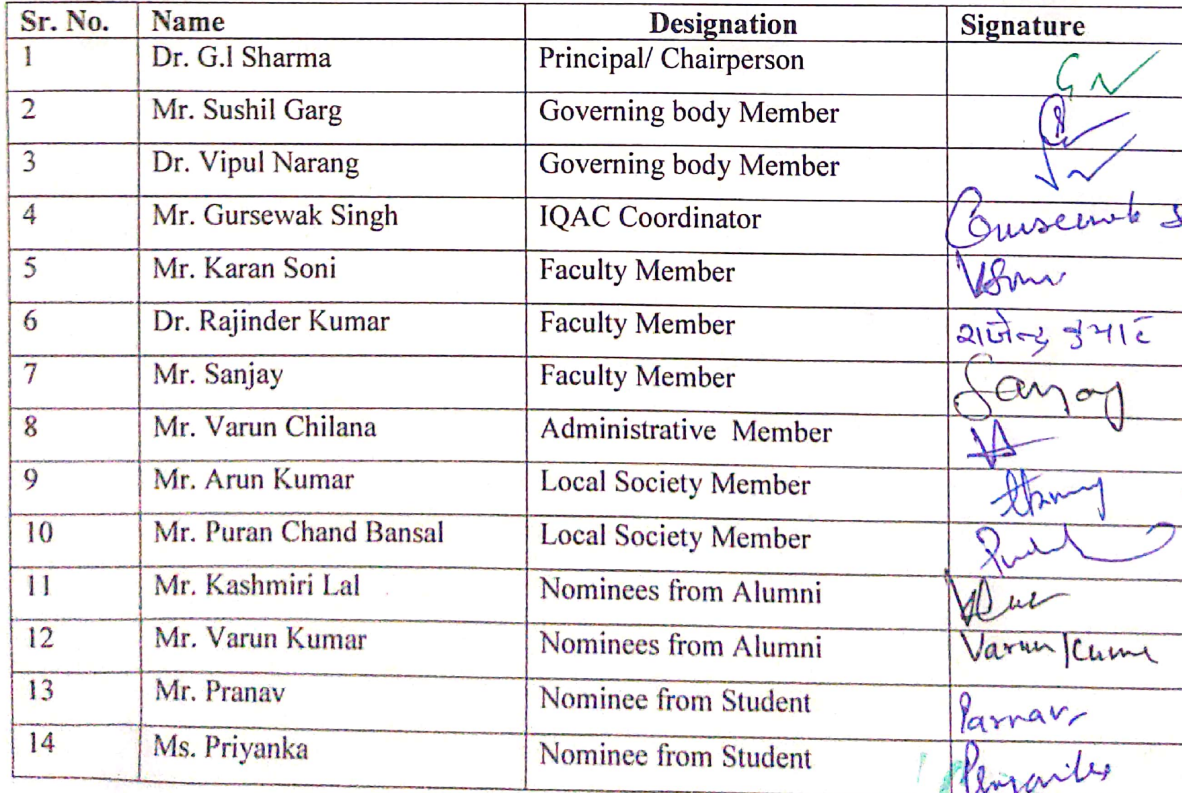 Sr. No. Name Designation Signature
1 Dr. G.l Sharma Principal/ Chairperson
2 Mr. Sushil Garg Governing body Member
3 Dr. Vipul Narang Governing body Member
4 Mr. Gursewak Singh IQAC Coordinator Gursewak S
5 Mr. Karan Soni Faculty Member
6 Dr. Rajinder Kumar Faculty Member
7 Mr. Sanjay Faculty Member Sanjay
8 Mr. Varun Chilana Administrative Member
9 Mr. Arun Kumar Local Society Member
10 Mr. Puran Chand Bansal Local Society Member
11 Mr. Kashmiri Lal Nominees from Alumni
12 Mr. Varun Kumar Nominees from Alumni Varun
13 Mr. Pranav Nominee from Student Parnav
14 Ms. Priyanka Nominee from Student